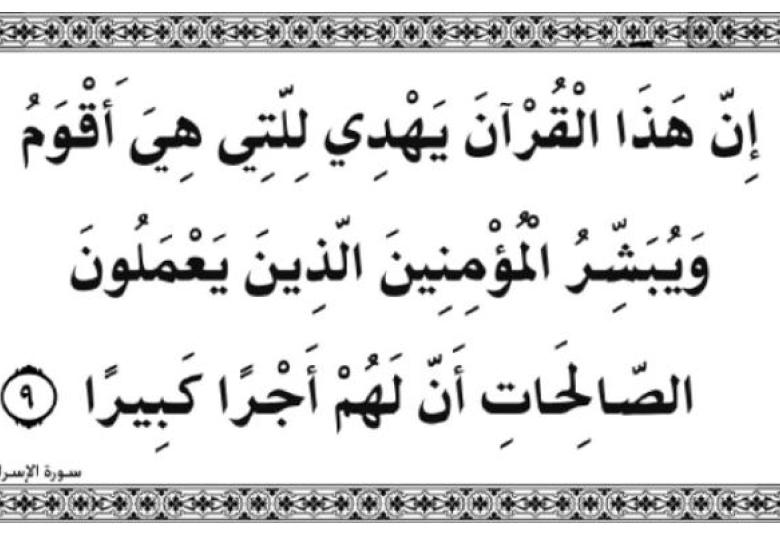 إِنَّ هَذَا الْقُرْآنَ يَهْدِي لِلَّتِي هِيَ أَقْوَمُ
وَيُبَشِّرُ الْمُؤْمِنِينَ الَّذِينَ يَعْمَلُونَ
الصَّالِحَاتِ أَنَّ لَهُمْ أَجْرًا كَبِيرًا ٩
سورة الإسرا